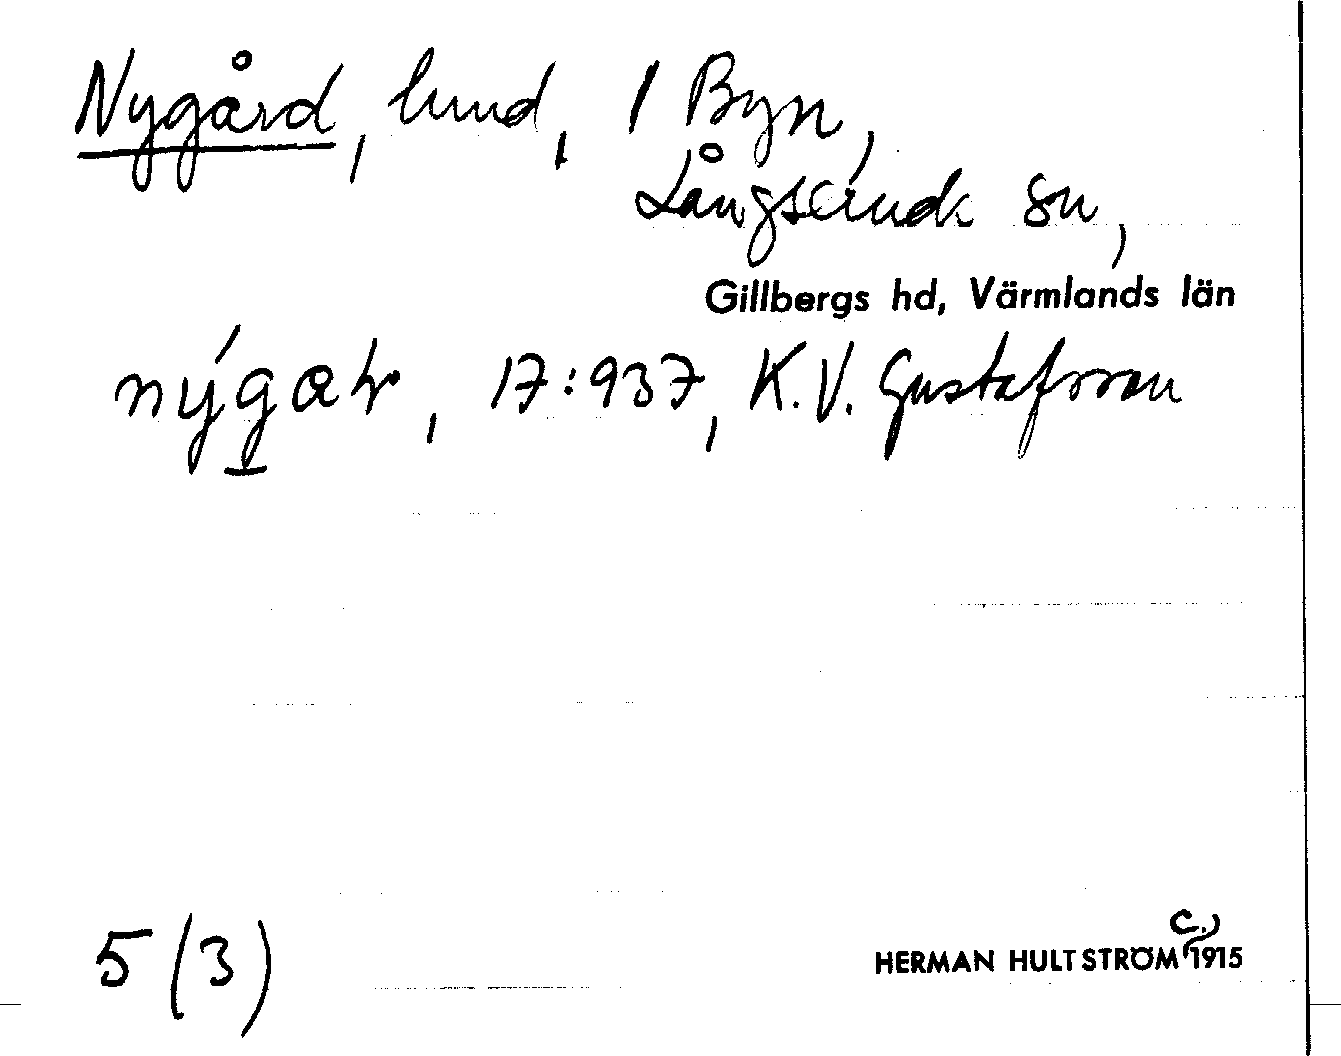 Nygård, lund, 1 Byn,
Långserud sn,
Gillbergs hd, Värmlands län
17:937, K.V. Gustafsson
5 (3)
HERMAN HULTSTRÖM c. 1915